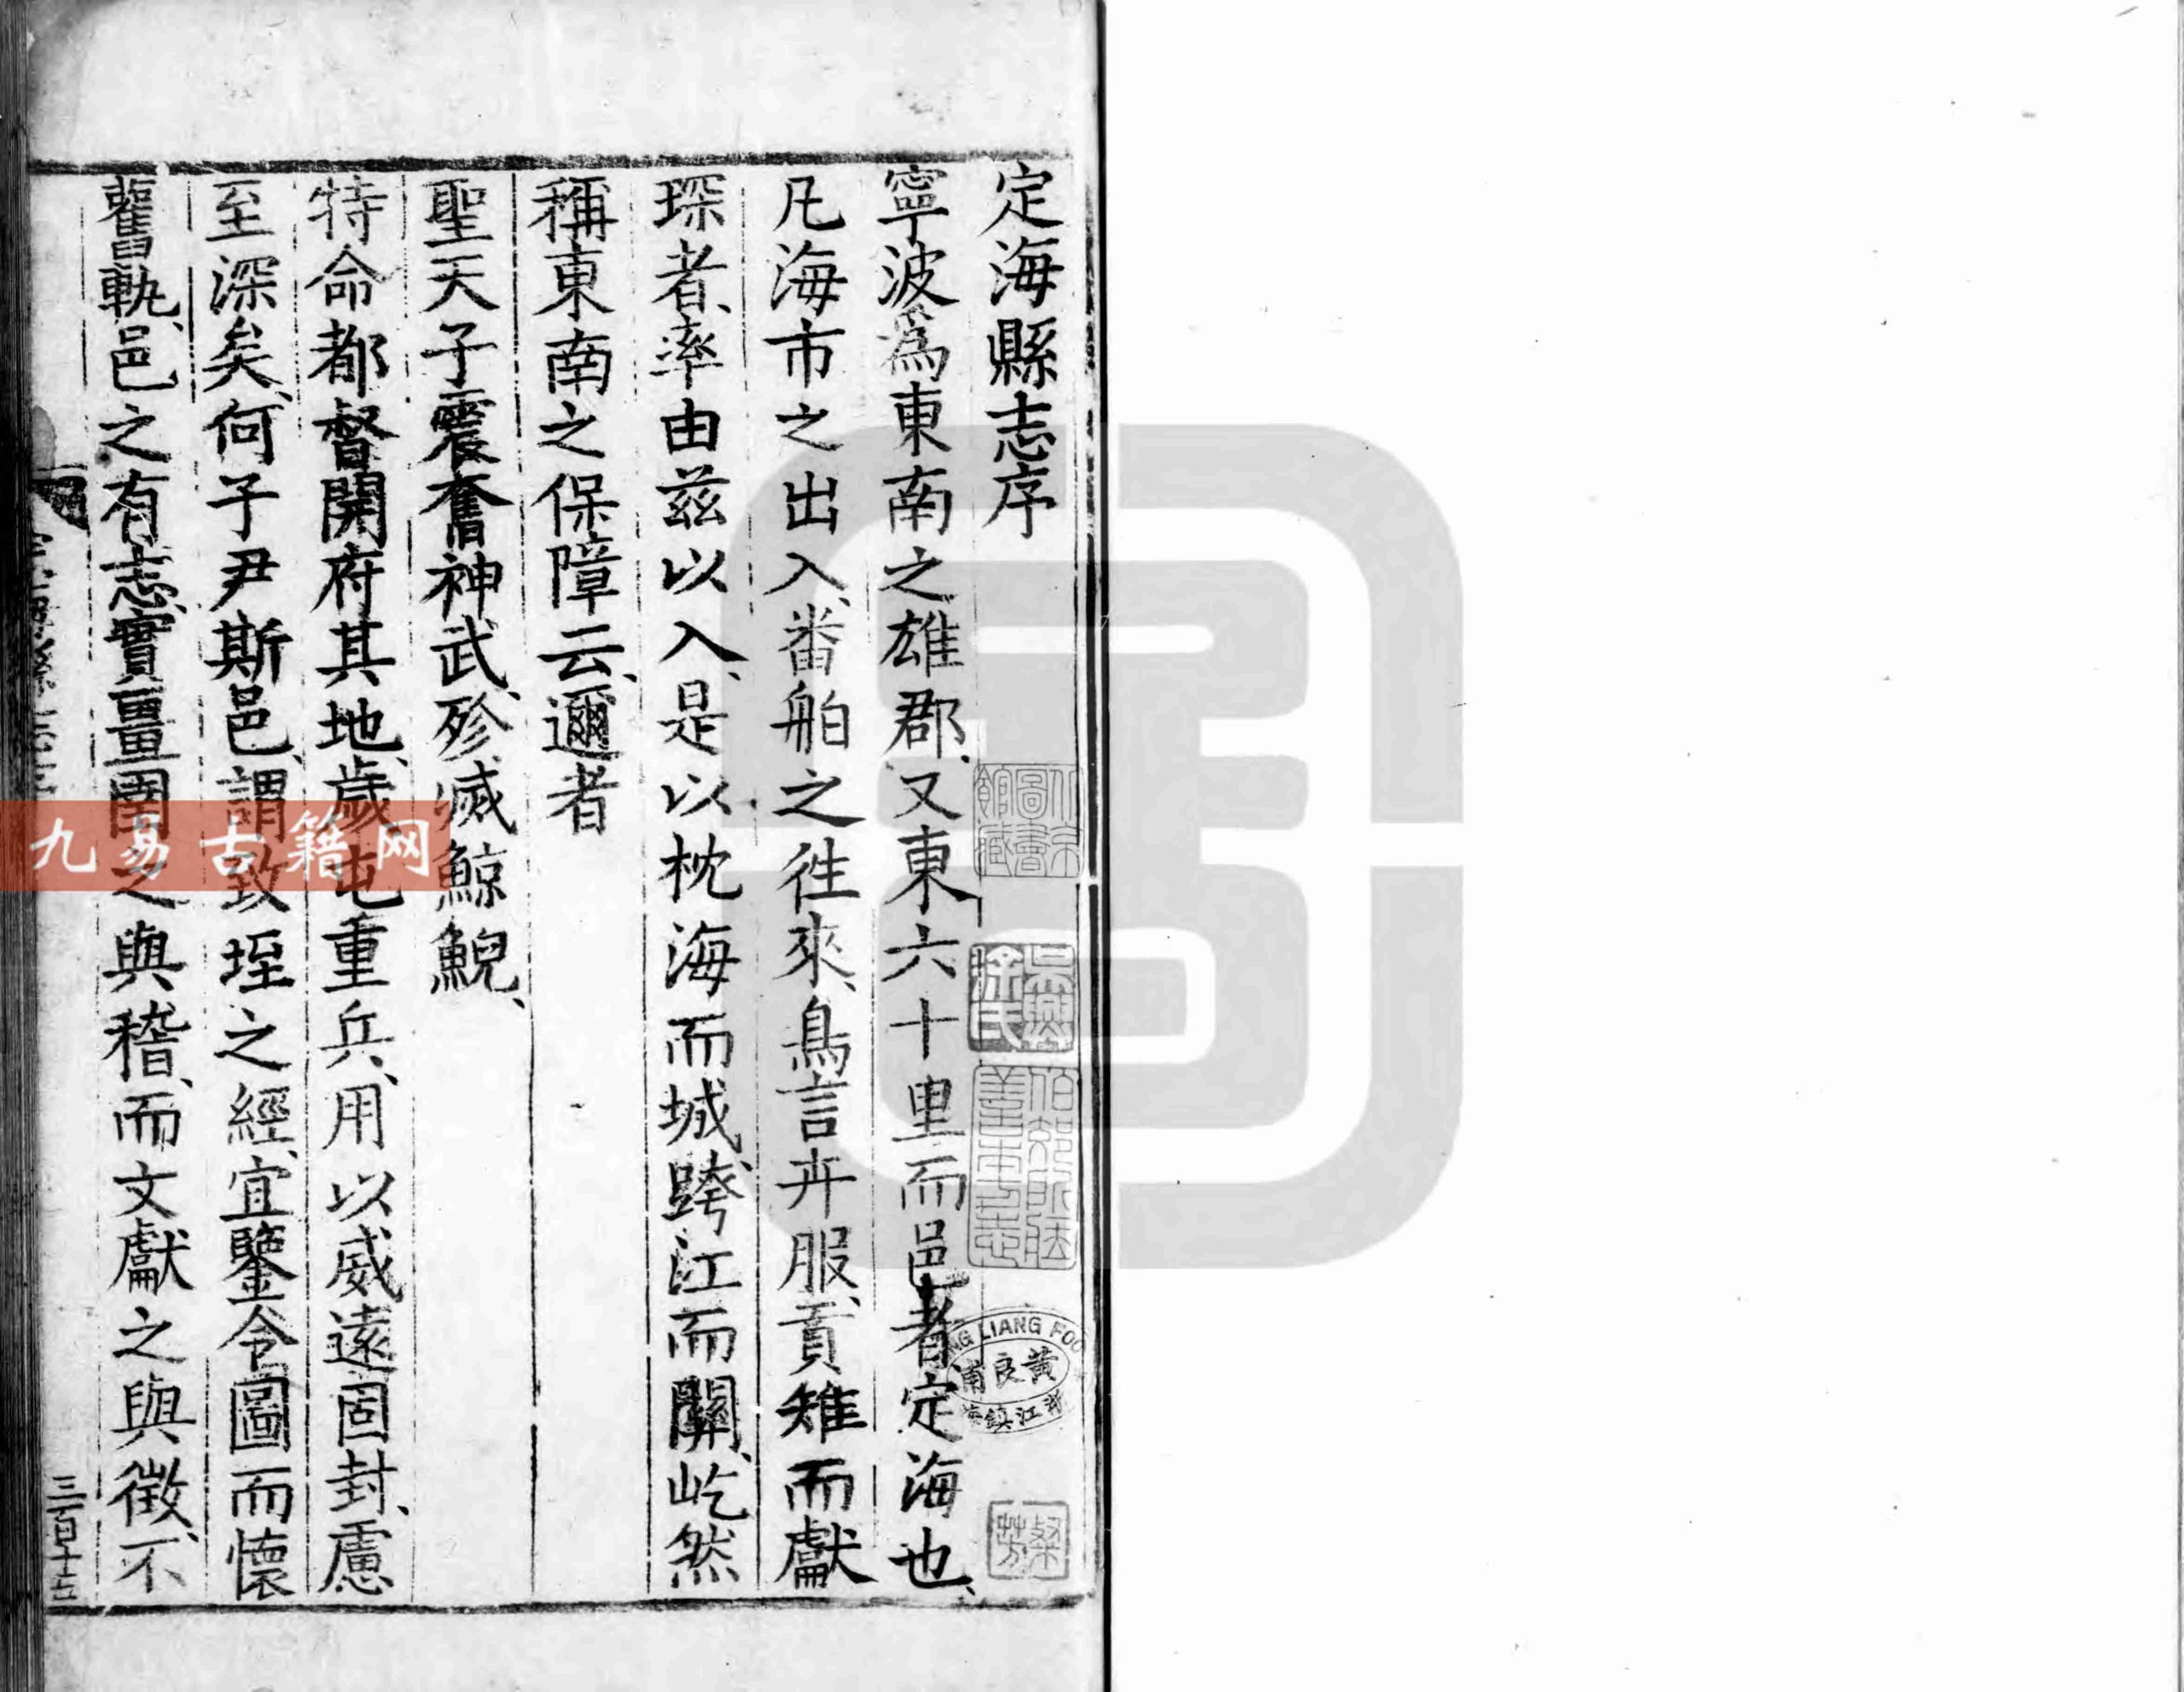 定海縣志序
寧波為東南之雄郡又東六十里而邑者定海也
凡海市之出入番舶之徃來鳥言卉服貢雉而獻
琛者率由茲以入是以枕海而城跨江而關屹然
稱東南之保障云邇者
聖天子震奮神武殄滅鯨鯢
特命都督開府其地歲屯重兵用以威遠固封慮
至深矣何子尹斯邑謂致垤之經宜鑒令圖而懷
舊軌邑之有志實畺圉之與稽而文獻之與徵不
吳興徐氏
LIANG FOO
黃良甫
粲芳
九易古籍网